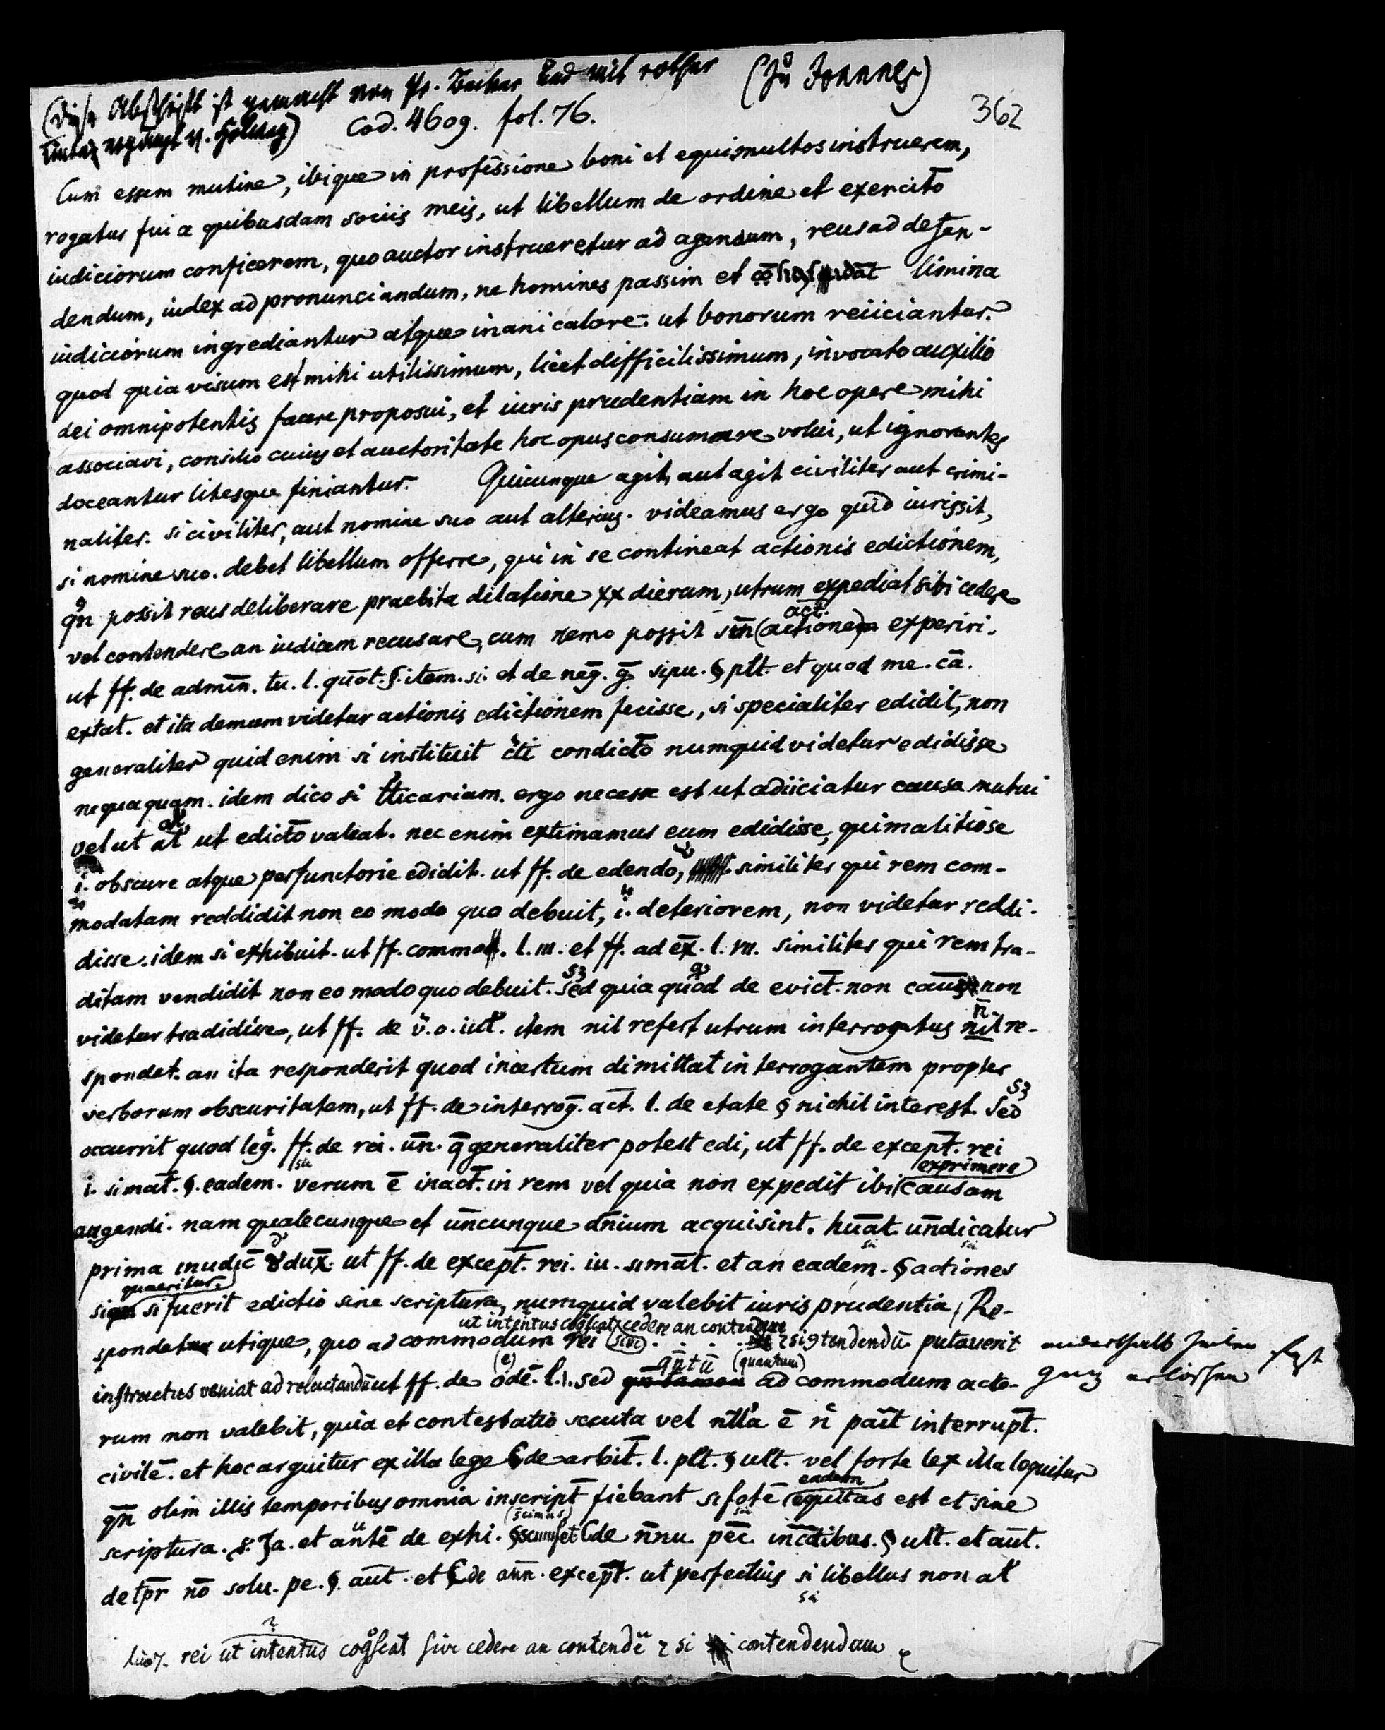 (Diese Abschrift ist gemacht von Pr. Becker und mit rother (Zu Joannes)
Cod. 4609. fol. 76. 362
Cum essem mutine, ibique in professione boni et equi multos instruerem,
rogatus fui a quibusdam sociis meis, ut libellum de ordine et exercito
iudiciorum conficerem, quo auctor instrueretur ad agendum, reus ad defen-
dendum, iudex ad pronunciandum, ne homines passim et limina
iudiciorum ingrediantur atque inani calore ut bonorum reiiciantur.
quod quia visum est mihi utilissimum, licet difficilissimum, invocato auxilio
dei omnipotentis facere proposui, et iuris prudentiam in hoc opere mihi
associavi, consilio cuius et auctoritate hoc opus consumare volui, ut ignorantes
doceantur litesque finiantur. Quicunque agit, aut agit civiliter aut crimi-
naliter. si civiliter, aut nomine suo aut alterius. videamus ergo quid iuris sit,
si nomine suo. debet libellum offerre, qui in se contineat actionis edictionem,
qn̄ possit reus deliberare praebita dilatione xx dierum, utrum expediat sibi cedere
vel contendere an iudicem recusare, cum nemo possit sin̄ (actione) act. experiri.
ut ff. de admin̄. tu. l. quōt. §. item. si. et de neḡ. ḡ. sipu. § plt. et quod me. cā.
extat. et ita demum videtur actionis edictionem fecisse, si specialiter edidit, non
generaliter quid enim si instituit condictō numquid videtur edidisse
nequaquam. idem dico si tticariam. ergo necesse est ut adiiciatur causa mutui
vel ut at ut edictō valeat. nec enim extimamus eum edidisse, qui malitiose
i. obscure atque perfunctorie edidit. ut ff. de edendo, similiter qui rem com-
modatam reddidit non eo modo quo debuit, i. deteriorem, non videtur reddi-
disse. idem si exhibuit. ut ff. commod. l. m. et ff. ad ex̄. l. m. similiter qui rem tra-
ditam vendidit non eo modo quo debuit. sed quia quod de evict̄. non non
videtur tradidisse, ut ff. de v̄. o. iut. item nil refert utrum interrogatus nil re-
spondet. an ita responderit quod incertum dimittat interrogantem propter
verborum obscuritatem, ut ff. de interroḡ. act̄. l. de etate § nichil interest. Sed
occurrit quod leg. ff. de rei. un̄. q̄ generaliter potest edi, ut ff. de except̄. rei
i. si mat̄. §. eadem. verum ē inact̄. in rem vel quia non expedit ibi exprimere causam
augendi. nam qualecunque et un̄cunque dn̄ium acquisint. hūat. un̄dicatur
prima inudic̄ dux̄. ut ff. de except̄. rei. iu. si mat̄. et an eadem. § actiones
quaeritur si fuerit edictio sine scriptura, numquid valebit iuris prudentia, Re-
ut intentus cogscat cedere an contendere
spondetur utique, quo ad commodum rei (sive) . . . tendendū putaverit anderthalb Zeilen
instructus veniat ad reluctandū ut ff. de edē. l. i. sed qn̄tū (quantum) ad commodum acto- ganz erloschen fast
rum non valebit, quia et contestatio secuta vel nlla ē n̄ pait interrupt̄.
civilē. et hoc arguitur ex illa lege C de arbit̄. l. plt. § ult. vel forte lex illa loquitur
qn̄ olim illis temporibus omnia inscript̄ fiebant si fotē eadem equitas est et sine
scriptura. §. Ja. et antē de exhi. § (scimus) et C de n̄nu pēc. inc̄dibus. § ult. et aūt.
de tp̄r nō solu. pe. §. aūt. et C de ann̄. excep̄t. ut perfectius si libellus non at
rei ut intentus cogscat sive cedere an contendē si contendendum